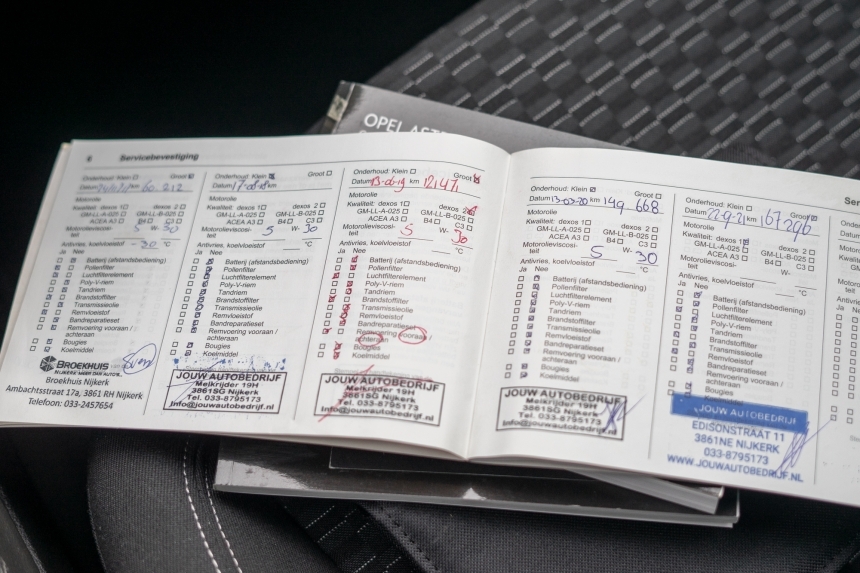 OPEL AST
6 Servicebevestiging
Onderhoud: Klein Groot
Datum km 60.212
Motorolie
Kwaliteit: dexos 1 dexos 2
GM-LL-A-025 GM-LL-B-025
ACEA A3 B4 C3
Motorolieviscosi- 5 W- 30
teit
Antivries, koelvloeistof -30 °C
Ja Nee
Batterij (afstandsbediening)
Pollenfilter
Luchtfilterelement
Poly-V-riem
Tandriem
Brandstoffilter
Transmissieolie
Remvloeistof
Bandreparatieset
Remvoering vooraan /
achteraan
Bougies
Koelmiddel
BROEKHUIS
NIJKERK
Broekhuis Nijkerk
Ambachtsstraat 17a, 3861 RH Nijkerk
Telefoon: 033-2457654
Onderhoud: Klein Groot
Datum 17-08-18 km
Motorolie
Kwaliteit: dexos 1 dexos 2
GM-LL-A-025 GM-LL-B-025
ACEA A3 B4 C3
Motorolieviscosi- 5 W- 30
teit
Antivries, koelvloeistof °C
Ja Nee
Batterij (afstandsbediening)
Pollenfilter
Luchtfilterelement
Poly-V-riem
Tandriem
Brandstoffilter
Transmissieolie
Remvloeistof
Bandreparatieset
Remvoering vooraan /
achteraan
Bougies
Koelmiddel
JOUW AUTOBEDRIJF
Melkrijder 19H
3861SG Nijkerk
Tel. 033-8795173
Info@jouwautobedrijf.nl
Onderhoud: Klein Groot
Datum 13-06-19 km 121471
Motorolie
Kwaliteit: dexos 1 dexos 2
GM-LL-A-025 GM-LL-B-025
ACEA A3 B4 C3
Motorolieviscosi- 5 W- 30
teit
Antivries, koelvloeistof °C
Ja Nee
Batterij (afstandsbediening)
Pollenfilter
Luchtfilterelement
Poly-V-riem
Tandriem
Brandstoffilter
Transmissieolie
Remvloeistof
Bandreparatieset
Remvoering vooraan /
achteraan
Bougies
Koelmiddel
JOUW AUTOBEDRIJF
Melkrijder 19H
3861SG Nijkerk
Tel. 033-8795173
Info@jouwautobedrijf.nl
Onderhoud: Klein Groot
Datum 13-03-20 km 149 668
Motorolie
Kwaliteit: dexos 1 dexos 2
GM-LL-A-025 GM-LL-B-025
ACEA A3 B4 C3
Motorolieviscosi- 5 W- 30
teit
Antivries, koelvloeistof °C
Ja Nee
Batterij (afstandsbediening)
Pollenfilter
Luchtfilterelement
Poly-V-riem
Tandriem
Brandstoffilter
Transmissieolie
Remvloeistof
Bandreparatieset
Remvoering vooraan /
achteraan
Bougies
Koelmiddel
JOUW AUTOBEDRIJF
Melkrijder 19H
3861SG Nijkerk
Tel. 033-8795173
Info@jouwautobedrijf.nl
Ser
Onderhoud: Klein Groot
Datum 22-9-21 km 167296
Motorolie
Kwaliteit: dexos 1 dexos 2
GM-LL-A-025 GM-LL-B-025
ACEA A3 B4 C3
Motorolieviscosi- W-
teit
Antivries, koelvloeistof °C
Ja Nee
Batterij (afstandsbediening)
Pollenfilter
Luchtfilterelement
Poly-V-riem
Tandriem
Brandstoffilter
Transmissieolie
Remvloeistof
Bandreparatieset
Remvoering vooraan /
achteraan
Bougies
JOUW AUTOBEDRIJF
EDISONSTRAAT 11
3861NE NIJKERK
033-8795173
WWW.JOUWAUTOBEDRIJF.NL